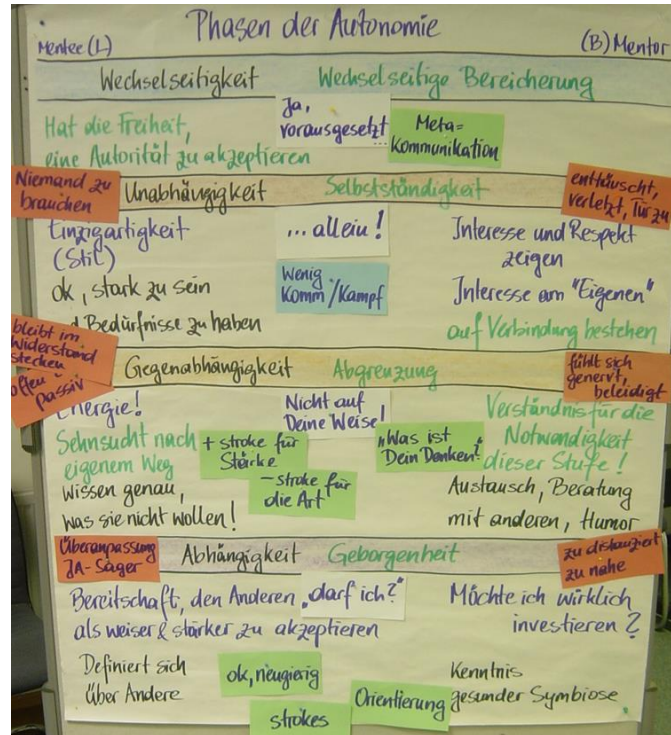 Phasen der Autonomie
Mentee (L)
(B) Mentor
Wechselseitigkeit Wechselseitige Bereicherung
Hat die Freiheit,
eine Autorität zu akzeptieren
Ja,
vorausgesetzt...
Meta=
Kommunikation
Niemand zu
brauchen
Unabhängigkeit Selbstständigkeit
enttäuscht,
verletzt, Tür zu
Einzigartigkeit
(Stil)
ok, stark zu sein
Bedürfnisse zu haben
...allein!
Wenig
Komm./Kampf
Interesse und Respekt
zeigen
Interesse am "Eigenen"
auf Verbindung bestehen
bleibt im
Widerstand
stecken
offen
passiv
Gegenabhängigkeit Abgrenzung
fühlt sich
genervt,
beleidigt
Energie!
Sehnsucht nach
eigenem Weg
wissen genau,
was sie nicht wollen!
Nicht auf
Deine Weise!
+ stroke für
Stärke
- stroke für
die Art
"Was ist
Dein Denken?"
Verständnis für die
Notwendigkeit
dieser Stufe!
Austausch, Beratung
mit anderen, Humor
Überanpassung
JA-Sager
Abhängigkeit Geborgenheit
zu distanziert
zu nahe
Bereitschaft, den Anderen
als weiser & stärker zu akzeptieren
"darf ich?"
Möchte ich wirklich
investieren?
Definiert sich
über Andere
ok, neugierig
strokes
Orientierung
Kenntnis
gesunder Symbiose